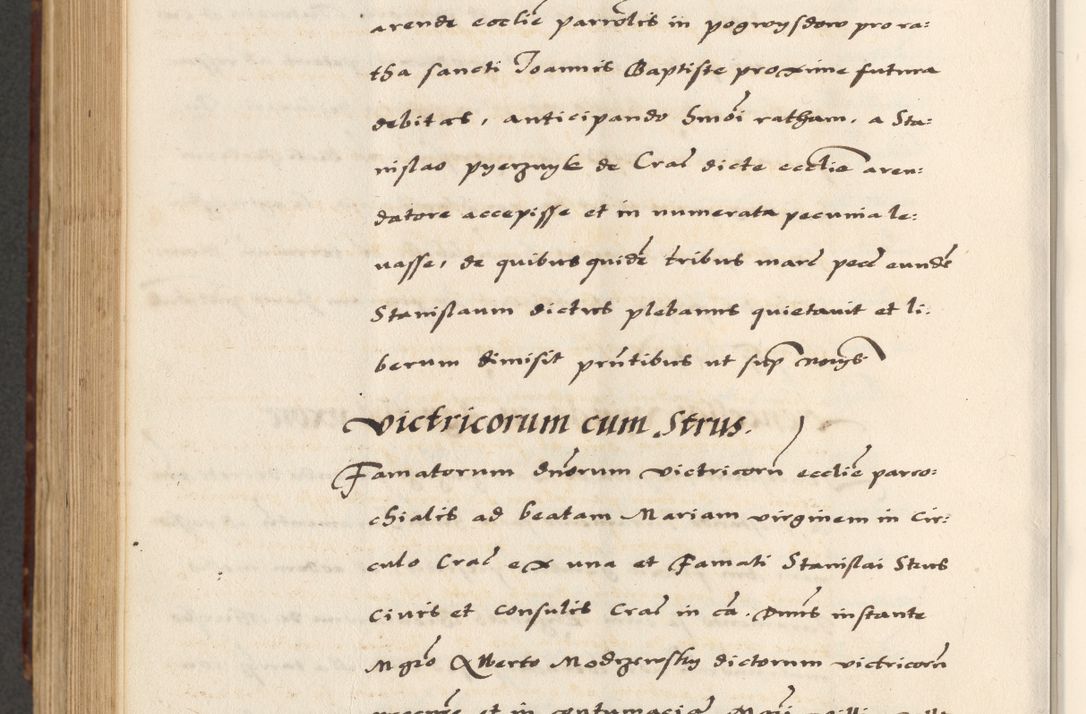 arende ecclie parrolis in pogwysdow pro ra:
tha sancti Joannis Baptiste proxime futura
debitas, anticipando hmoi ratham, a Sta:
nislao pyerznyk de Crac dicte ecclie aren:
datore accepisse et in numerata pecunia le:
uasse, de quibus quide tribus marc pecc eunde
Stanislaum dictus plebanus quietauit et li:
berum dimisit prntibus ut sup
victricorum cum Strus.
Famatorum dnorum victricoru ecclie parro:
chialis ad beatam Mariam virginem in cir:
culo Crac ex una et Famati Stanislai Strus
ciuis et consulis Crac in ca. Dnis instante
Mgro Alberto Modrzewsky dictorum victricoru
et in contumacia